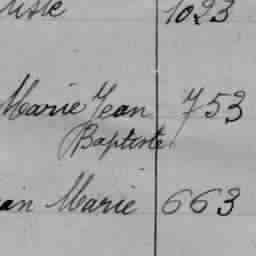 1023
Marie Jean 753
Baptiste
an Marie 663